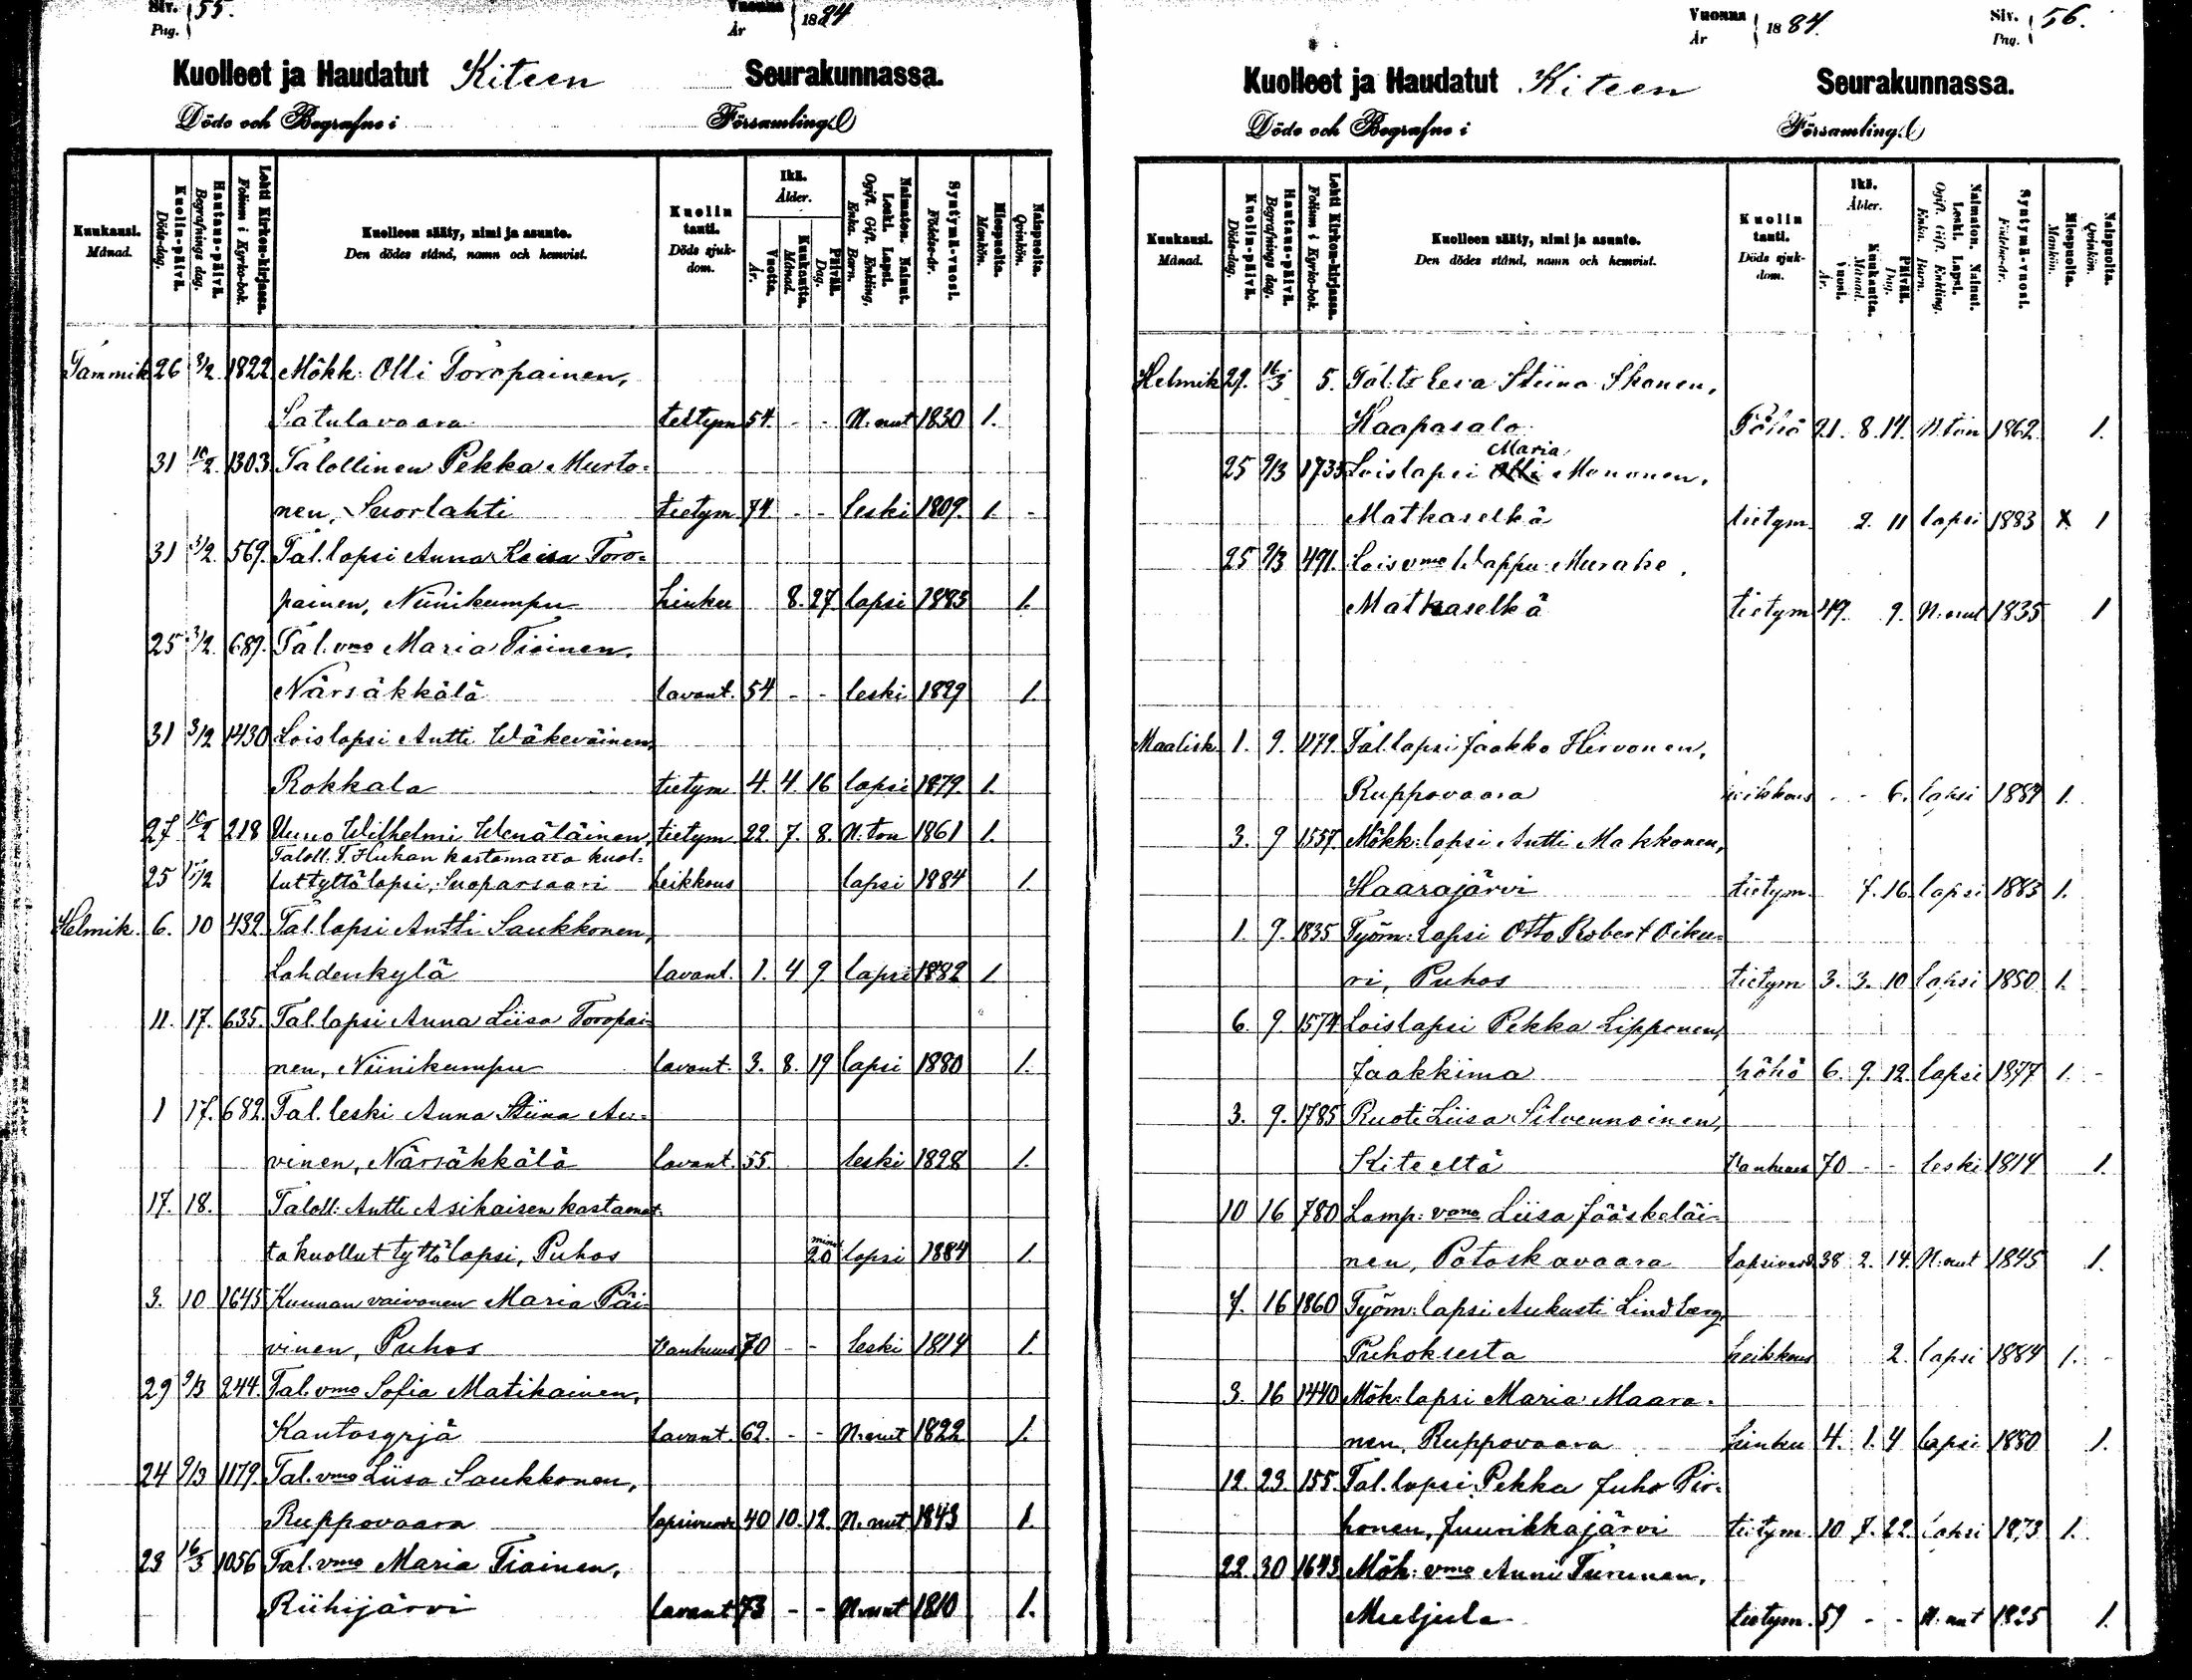 Siv. Pag. 55.
Vuonna År 1884
Kuolleet ja Haudatut Kiteen Seurakunnassa.
Döde och Begrafne i Församling.
Kuukausi. Månad.
Kuolin-päivä. Döds-dag.
Hautaus-päivä. Begrafnings dag.
Lehti Kirkon-kirjassa. Folium i Kyrko-bok.
Kuolleen sääty, nimi ja asunto. Den dödes stånd, namn och hemvist.
Kuolin tauti. Döds sjuk-dom.
Ikä. Ålder.
Vuotta. År.
Kuukautta. Månad.
Päivää. Dag.
Naimaton. Nainut. Leski. Lapsi. Ogift. Gift. Enkling, Enka. Barn.
Syntymä-vuosi. Födelse-år.
Miespuolta. Mankön.
Naispuolta. Qvinkön.
Tammik 26 3/2 1822 Mökk: Olli Toropainen,
Satulavaara tietym 54. - - N:nut 1830 1.
31 10/2 1303 Talollinen Pekka Murto-
nen, Suorlahti tietym 74. - - leski 1809. 1. -
31 3/2 569. Tal. lapsi Anna Kaisa Toro-
painen, Niinikumpu hinku 8. 27 lapsi 1883 1.
25 3/2 689. Tal. vmo Maria Tiainen,
Närsäkkälä lavant. 54 - - leski 1829 1.
31 3/2 1430 Loislapsi Antti Wäkeväinen,
Rokkala tietym 4. 4. 16 lapsi 1879. 1.
27 10/2 218 Unno Wilhelmi Wenäläinen, tietym. 22. 7. 8. N:ton 1861 1.
Taloll. T. Hukan kastamatta kuol-
25 /2 lut tyttölapsi, Suoparsaari heikkous lapsi 1884 1.
Helmik. 6. 10 432. Tal. lapsi Antti Saukkonen,
Lahdenkylä lavant. 1. 4 9. lapsi 1882 1.
11. 17. 635. Tal. lapsi Anna Liisa Toropai-
nen, Niinikumpu lavant. 3. 8. 19 lapsi 1880 1.
1 17. 682. Tal. leski Anna Stiina Au-
vinen, Närsäkkälä lavant. 55. leski 1828 1.
17. 18. Taloll: Antti Asikaisen kastamat-
ta kuollut tyttölapsi, Puhos 20 min. lapsi 1884 1.
3. 10 1645 Kunnan vaivanen Maria Päi-
vinen, Puhos Vanhuus 70 - - leski 1814 1.
29 9/3 244. Tal. vmo Sofia Matikainen,
Kantosyrjä lavant. 62. - - N:nut 1822 1.
24 9/3 1179. Tal. vmo Liisa Saukkonen,
Ruppovaara lapsivuode 40 10. 12. N:nut 1843 1.
23 16/3 1056 Tal. vmo Maria Tiainen,
Riihijärvi lavant 73 - - N:nut 1810 1.
Vuonna År 1884.
Siv. Pag. 56.
Kuolleet ja Haudatut Kiteen Seurakunnassa.
Döde och Begrafne i Församling.
Kuukausi. Månad.
Kuolin-päivä. Döds-dag.
Hautaus-päivä. Begrafnings dag.
Lehti Kirkon-kirjassa. Folium i Kyrko-bok.
Kuolleen sääty, nimi ja asunto. Den dödes stånd, namn och hemvist.
Kuolin tauti. Döds sjuk-dom.
Ikä. Ålder.
Vuosi. År.
Kuukautta. Månad.
Päivää. Dag.
Naimaton. Nainut. Leski. Lapsi. Ogift. Gift. Enkling. Enka. Barn.
Syntymä-vuosi. Födelse-år.
Miespuolta. Mankön.
Naispuolta. Qvinkön.
Helmik 29. 16/3 5. Tal:tr Eeva Stiina Ikonen,
Haapasalo Pöhö 21. 8. 14. N:tön 1862 1.
Maria
25 9/3 1735 Loislapsi Olli Mononen,
Matkaselkä tietym. 2. 11 lapsi 1883 1
25 9/3 491. Lois vmo Wappu Murahe,
Matkaselkä tietym 49. 9. N:nut 1835 1
Maalisk. 1. 9. 1179. Tal. lapsi Jaakko Hirvonen,
Ruppovaara heikkous - - 6. lapsi 1884 1.
3. 9 1557. Mökk: lapsi Antti Makkonen,
Haarajärvi tietym. 7. 16. lapsi 1883 1.
1. 9. 1835 Työm: lapsi Otto Robert Oiku-
ri, Puhos tietym 3. 3. 10 lapsi 1880 1.
6. 9. 1574 Loislapsi Pekka Lipponen,
Jaakkima pöhö 6. 9. 12. lapsi 1877 1. -
3. 9. 1785 Ruoti Liisa Silvennoinen,
Kiteeltä Vanhuus 70 - - leski 1814 1.
10 16 780 Lamp: vmo Liisa Jääskeläi-
nen, Potoskavaara lapsivuod. 38 2. 14. N:nut 1845 1.
7. 16 1860 Työm: lapsi Aukusti Lindberg,
Puhoksesta heikkous 2. lapsi 1884 1. -
3. 16 1440 Mök: lapsi Maria Maara-
nen, Ruppovaara hinku 4. 1. 4 lapsi 1880 1.
12. 23. 155. Tal. lapsi Pekka Juho Pir-
honen, Juurikkajärvi tietym 10 7. 22. lapsi 1873 1.
22. 30 1643 Mök: vmo Anni Turunen,
Muljula tietym. 59 - - N:nut 1825 1.